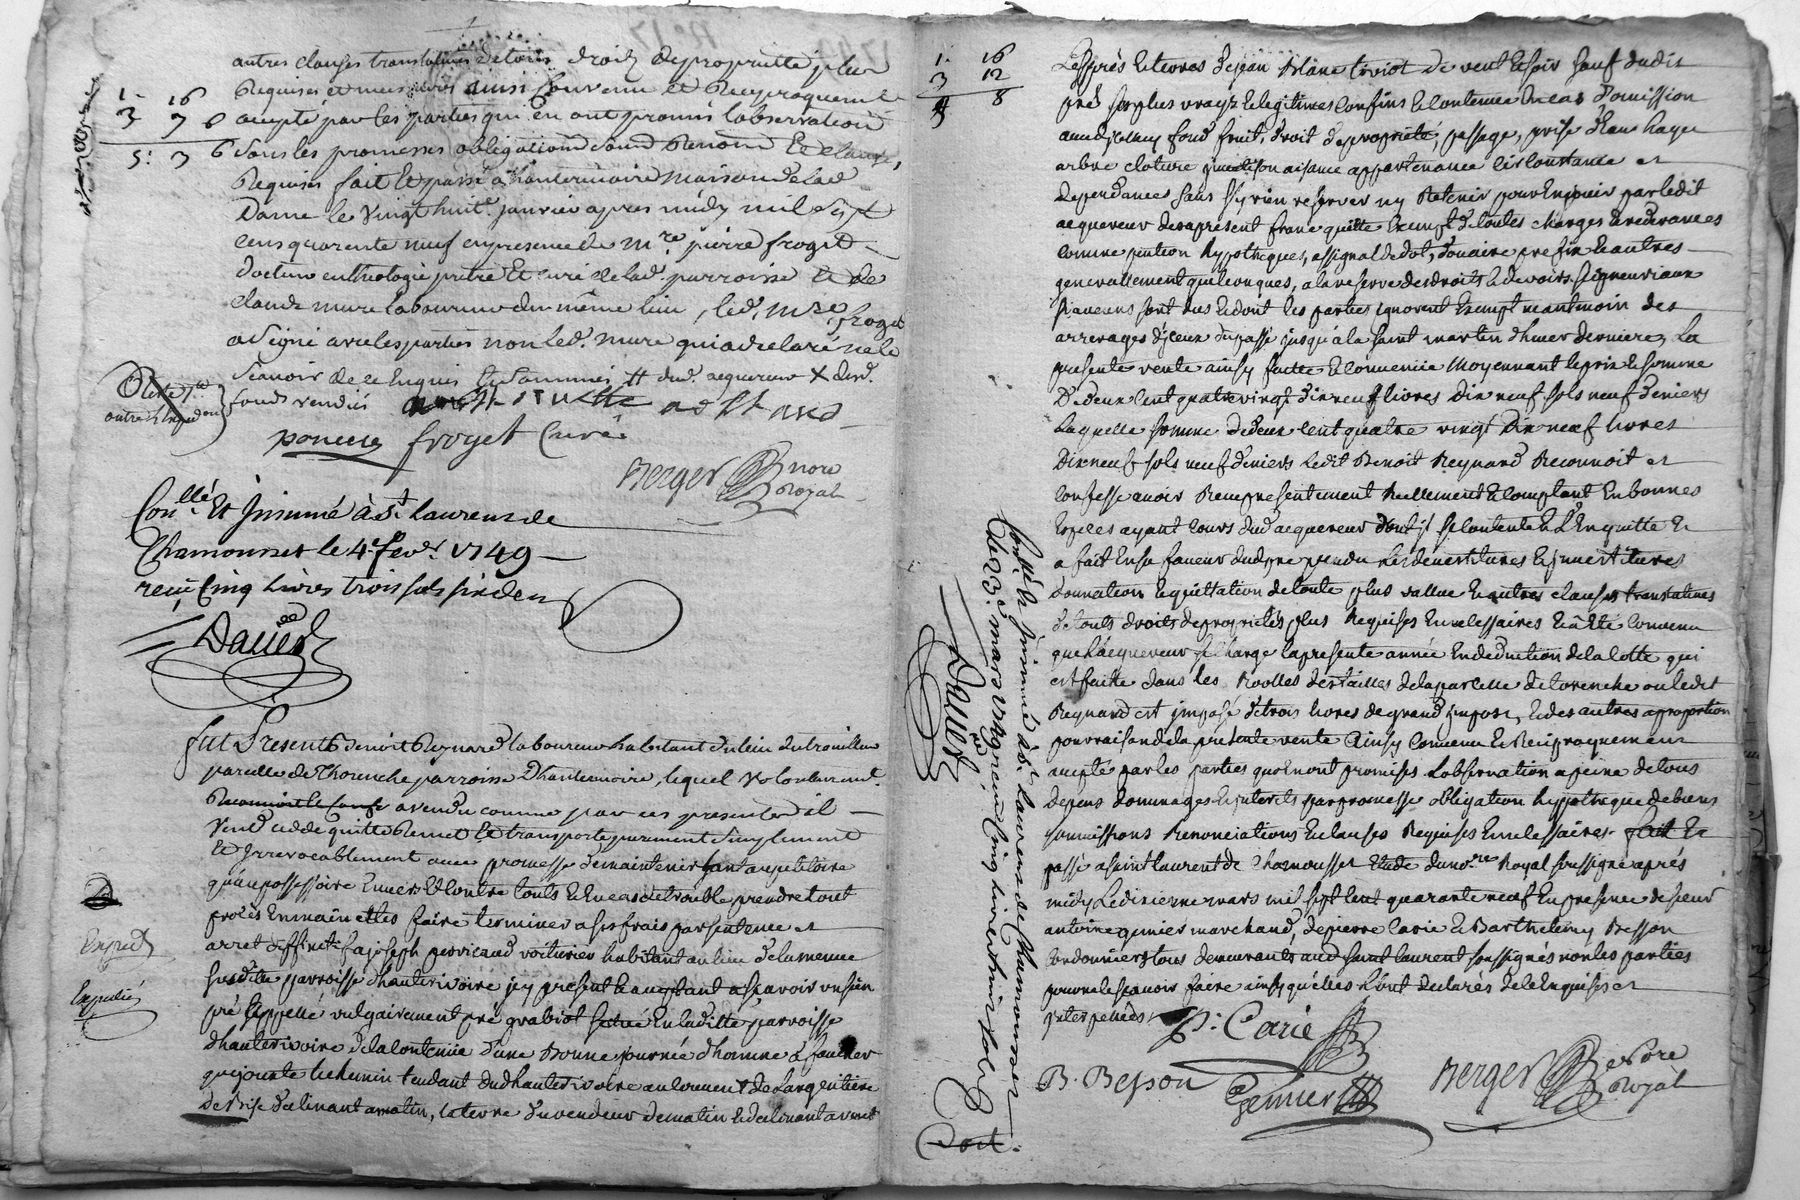 autres clauses translatives de touts droits de propriette plus
Requises et necessaires ainsi Convenu et Reciproquement
accepté par les parties qui en ont promis l'observation
sous les promesses obligations Renom Et clauses,
Requises fait Et passé a hauterivoire maison de lad
Dame le vingt huit.e janvier apres midy mil sept
cens quarente neuf en presence de m.re pierre froget
docteur en theologie pretre Et curé de lad. parroisse Et de
Claude mure laboureur du même lieu, led. M.re froget
a signé avec les parties non led. mure qui a declaré ne le
scavoir de ce Enquis Et sommés
fonds vendus
1. 16
3 7 6
5: 3 6
poncins froget Curé
Berger nore
Royal
Con.llé Et Insinué à S.t Laurens de
Chamousset le 4.e fev.r 1749
reçu Cinq Livres trois sols six den
Davier
fut Present Benoit Reynard laboureur habitant du lieu du trouilleux
parcelle de Thorenche parroisse D'hauterivoire, lequel volontairem.t
a vendu comme par ces presentes il
vend cedde quitte Remet Et transporte purement simplement
Et Irrevocablement avec promesse de maintenir tant au petitoire
qu'au possessoire Envers Et Contre touts Et En cas de trouble prendre tout
procès En main et les faire terminer a ses frais par sentence et
arret diffinitif a joseph voiturier habitant au lieu de la
susditte parroisse d'hauterivoire icy present Et acceptant asscavoir un sien
pré appellé vulgairement pré grabiot situé En laditte parroisse
d'hauterivoire de la contenue d'une Bonne journée d'homme a faucher
qui jouxte le chemin tendant dud hauterivoire au couvent de Largentiere
de Bise declinant a matin, la terre du vendeur de matin Et declinant a vent
Exped
Expedié
1. 16
3 12
8
Les prés Et terres de jean toriot de vent Et soir sauf dudit
pré ses plus vrays Et legitimes confins Et contenue En cas d'omission
avec fond fruit, droit de propriété, passage, prise d'eau hayes
arbre cloture aisance appartenance circonstance et
dependances sans s'y rien reserver ny Retenir pour En jouir par ledit
acquereur des a present franc quitte Exempt de toutes charges Et redevances
comme pention hypotheques, assignal de dot, douaire prefix Et autres
generallement quelconques, a la reserve des droits Et devoirs seigneuriaux
si aucuns sont dus Et dont les parties ignorent Exempt neantmoin des
arrerages d'iceux du passé jusqu'à la saint martin d'hiver derniere, La
presente vente ainsy faitte Et convenue Moyennant le prix Et somme
De deux cent quatre vingt dix neuf livres Dix neuf sols neuf deniers
Laquelle somme de deux cent quatre vingt Dix neuf livres
Dix neuf sols neuf deniers Ledit Benoit Reynard Reconnoit et
Confesse avoir Reçu presentement Reellement Et comptant En bonnes
Especes ayant cours dud acquereur dont il se contente Et L'En quitte Et
a fait En sa faveur dud pré vendu Les devestitures Et investitures
donnation Et quittation de toute plus vallue Et autres clauses translatives
de touts droits de proprietés plus Requises Et necessaires Et a Eté Convenu
que l'acquereur se charge la presente année En deduction de la cotte qui
est faitte dans les Roolles des tailles de la parcelle de torenche ou ledit
Reynard est imposé de trois livres de grand impost, Et des autres a proportion
pour raison de la presente vente Ainsy Convenu Et Reciproquement
accepté par les parties qui En ont promises L'observation a peine de tous
depens dommages Et interets par promesse obligation hypotheque de biens
soumissions Renonciations Et clauses Requises Et necessaires fait Et
passé a saint laurent de Chamousset Etude du no.re Royal soussigné après
midy Le dixieme mars mil sept cent quarante neuf En presence de sieur
antoine genier marchand, de pierre Carie Et Barthelemy Besson
Cordonniers tous demeurants aud saint laurent soussignés non les parties
pour ne le scavoir faire ainsy qu'elles L'ont declarés de ce Enquises et
interpellées
P. Carie
B. Besson
Genier
Berger Nore
Royal
Con.llé Et Insinué à S.t Laurens de Chamousset
le 23.e mars 1749 reçu Cinq livres huit sols
Davier